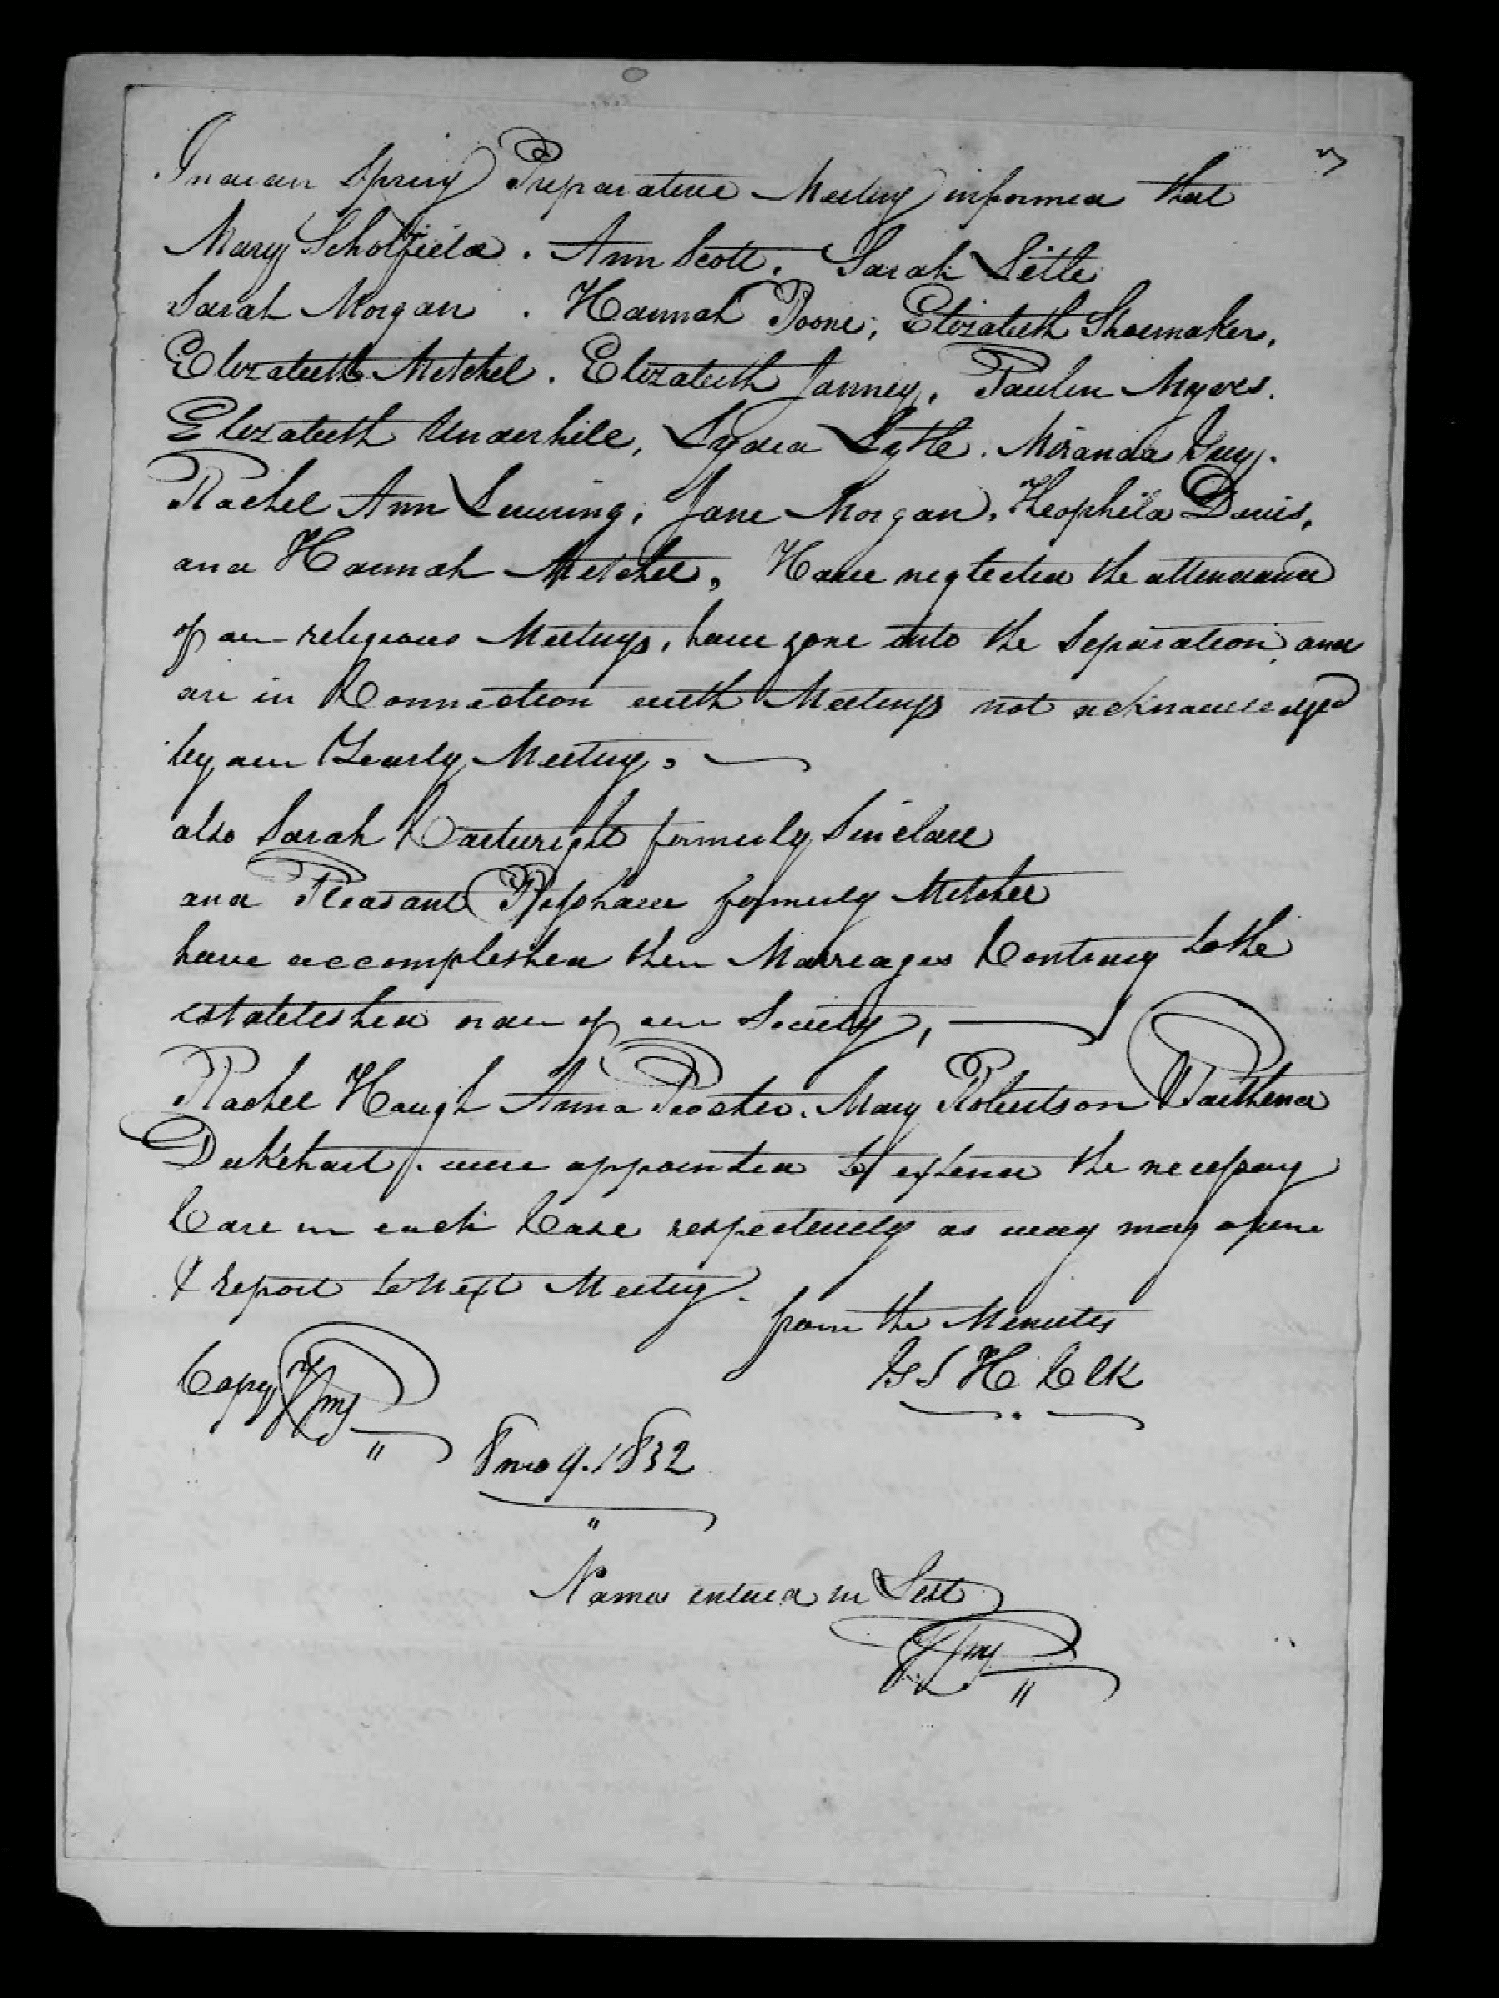 Indian Spring Preparative Meeting informed that
Mary Scholfield. Ann Scott. Sarah Litle
Sarah Morgan. Hannah Poone, Elizabeth Shoemaker,
Elizabeth Mitchel. Elizabeth Janney, Paulin Myers.
Elizabeth Underhill, Lydia Lytle. Miranda Guy.
Rachel Ann Levering, Jane Morgan, Theophila Davis,
and Hannah Mitchel, Have neglected the attendance
of our religious Meetings, have gone into the Separation, and
are in Connection with Meetings not acknowledged
by our Yearly Meeting.
also Sarah Cartwright formerly Sinclare
and Pleasant formerly Mitchel
have accomplished their Marriages Contrary to the
established order of our Society,
Rachel Haugh Anna Procter. Mary Robertson & Parthena
Dukehart. were appointed to extend the necessary
Care in each Case respectively as way may open
& report to next Meeting.
from the Minutes
H Clk
Copy
8 mo 9. 1832
Names entered in List